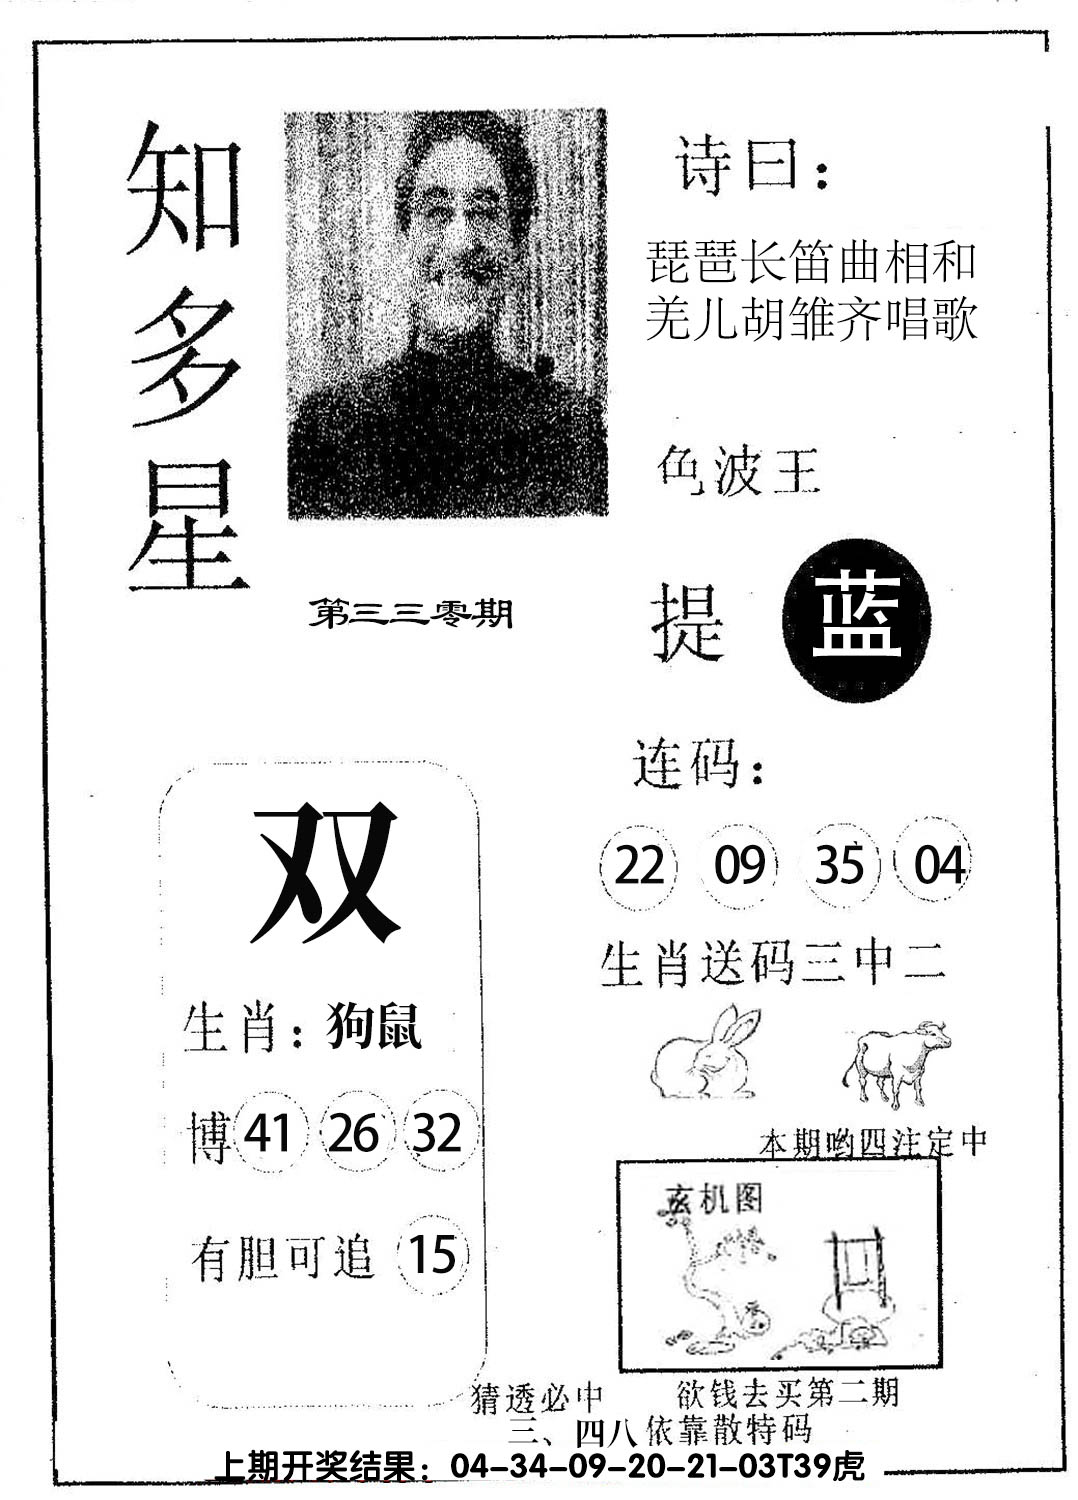 知多星
诗曰：
琵琶长笛曲相和
羌儿胡雏齐唱歌
色波王
提 蓝
第三三零期
连码：
22 09 35 04
生肖送码三中二
双
生肖：狗鼠
博 41 26 32
有胆可追 15
本期哟四注定中
玄机图
猜透必中 欲钱去买第二期
三、四八依靠散特码
上期开奖结果：04-34-09-20-21-03T39虎